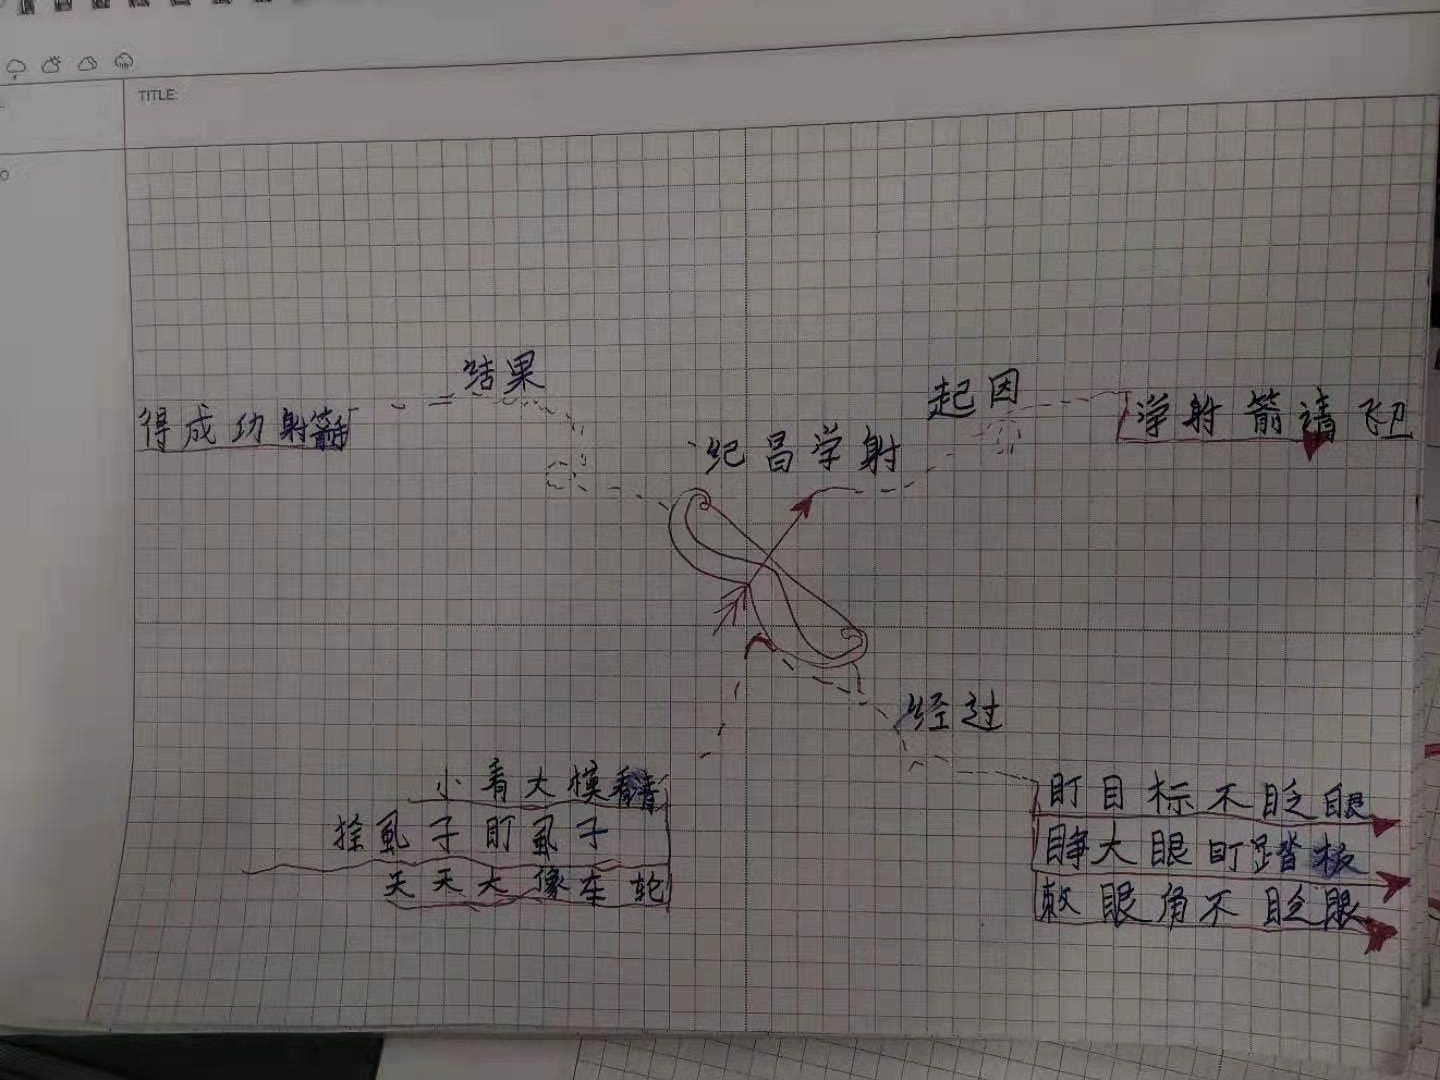 TITLE:
结果
起因
得成功射箭
学射箭请飞卫
纪昌学射
经过
小看大模看清
拴虱子盯虱子
天天大像车轮
盯目标不眨眼
睁大眼盯踏板
刺眼角不眨眼